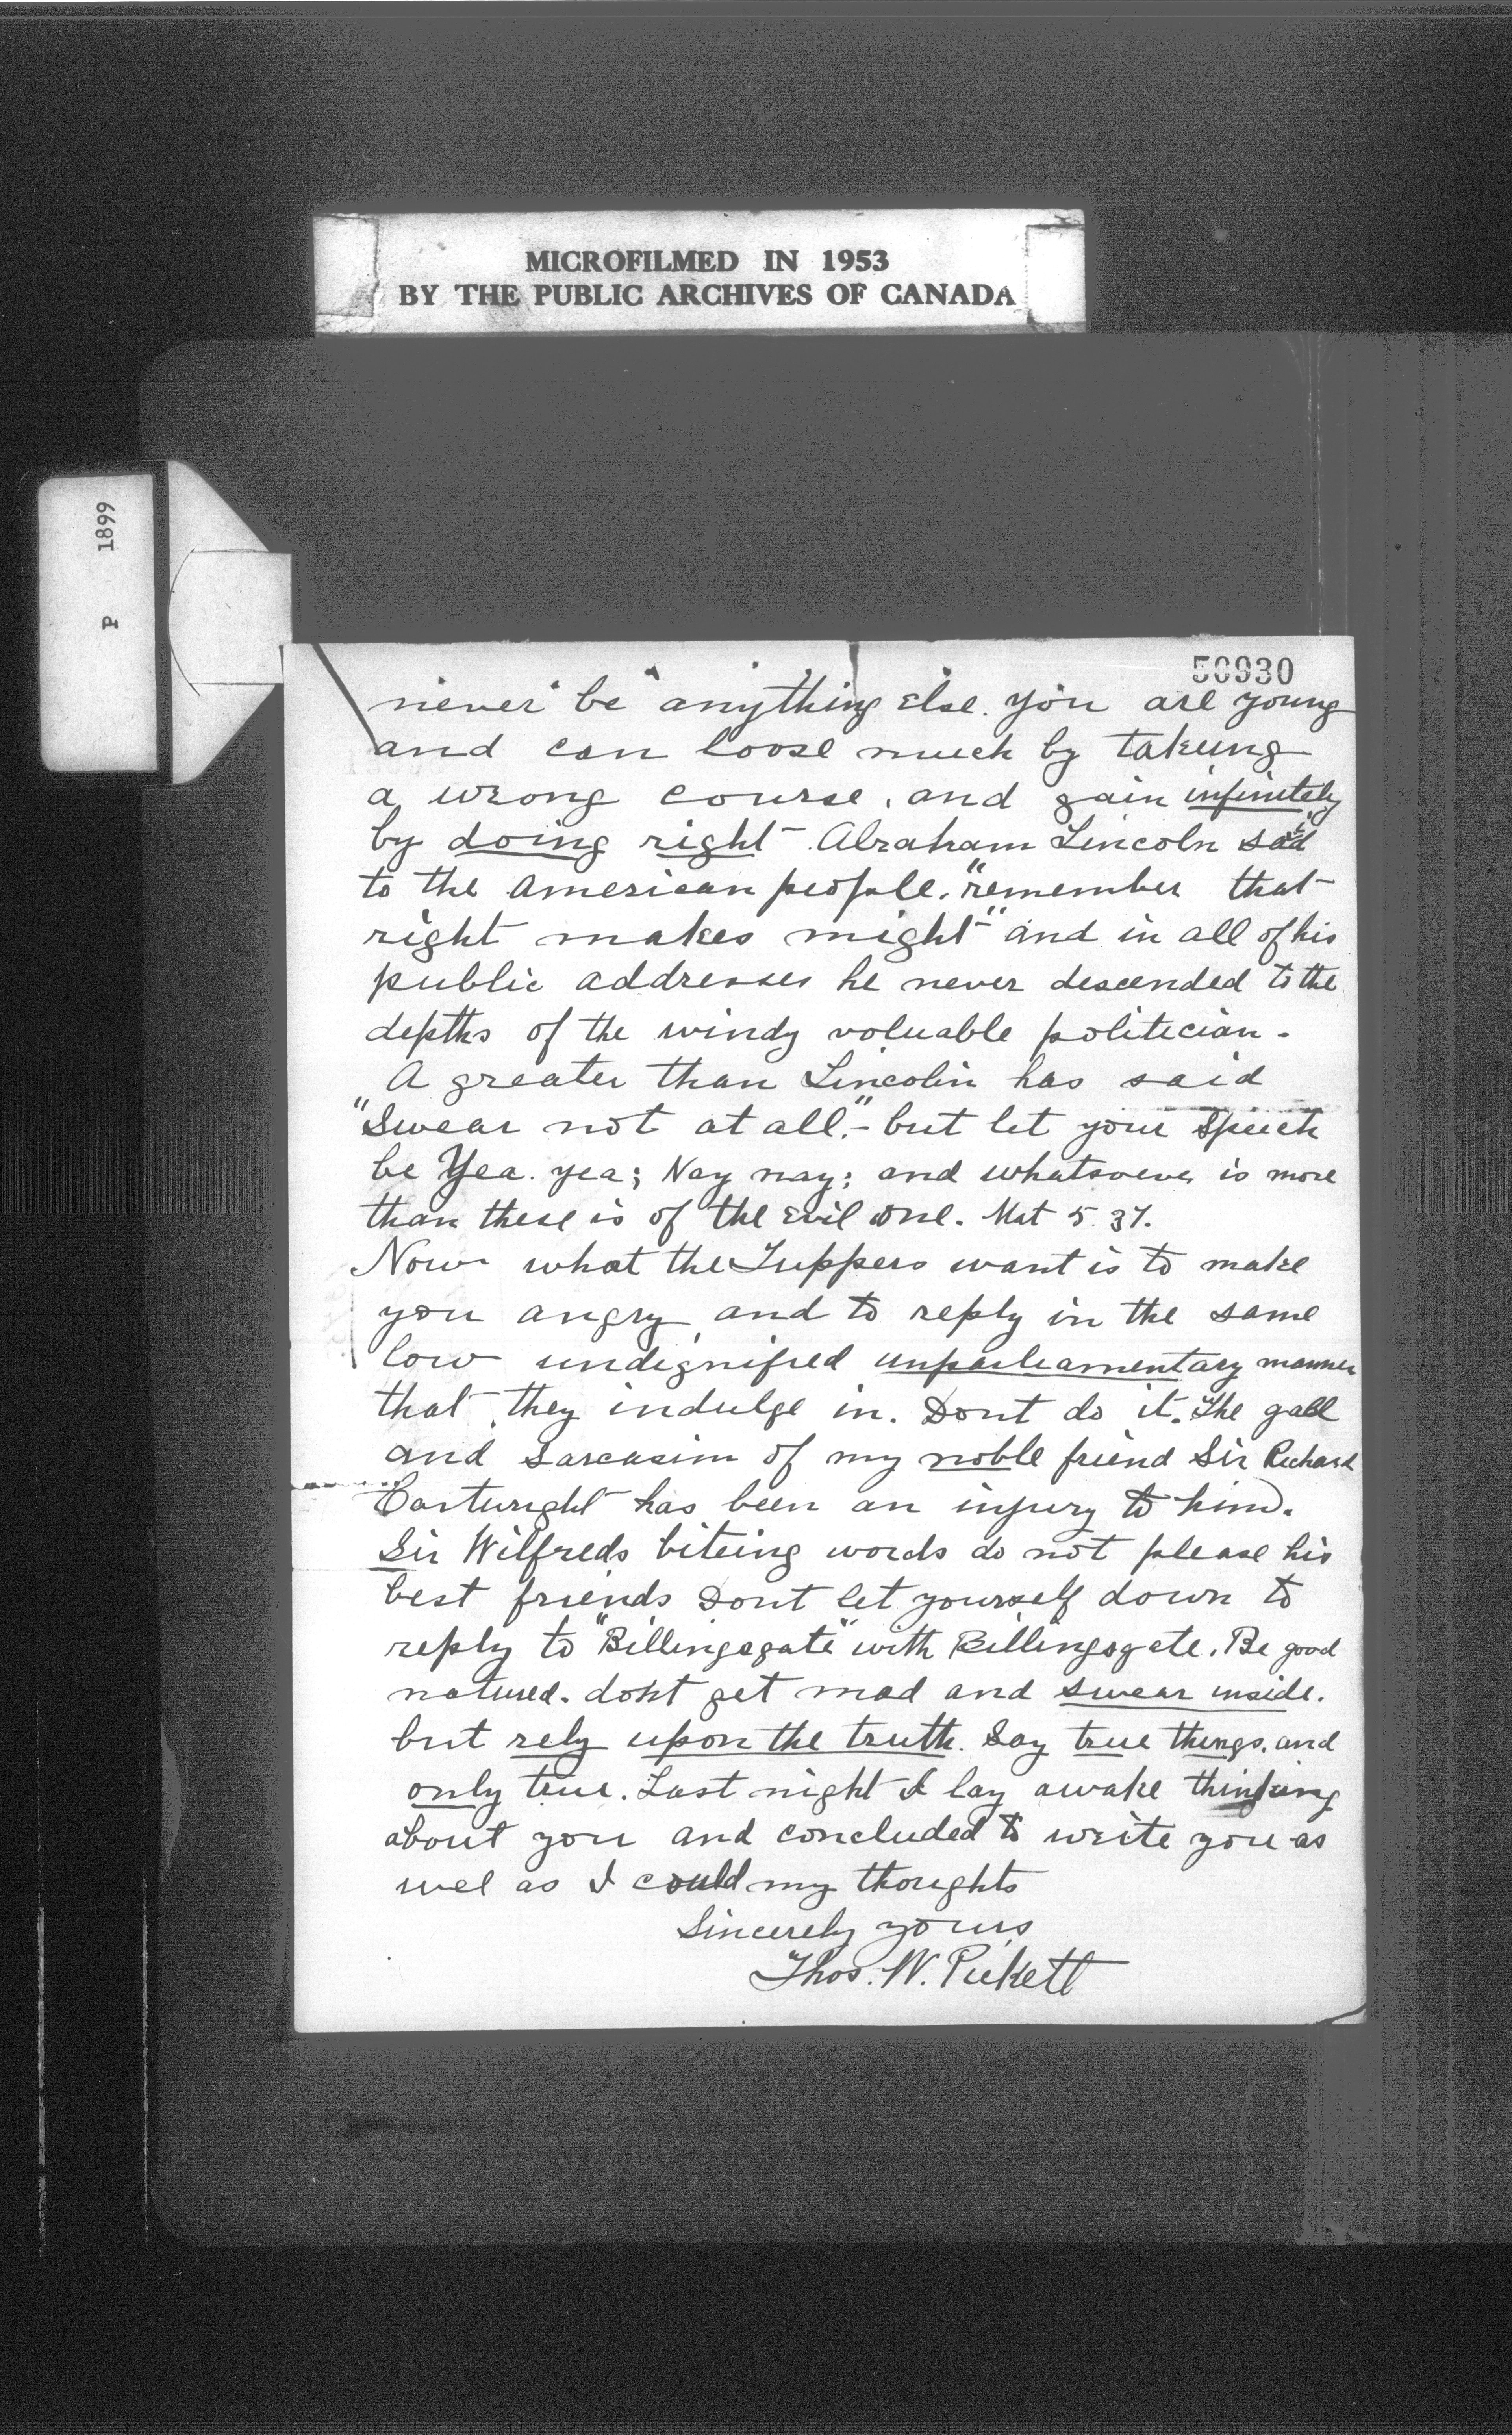 MICROFILMED IN 1953
BY THE PUBLIC ARCHIVES OF CANADA
P 1899
50930
never be anything else. you are young
and can loose much by takeing
a wrong course, and gain infinitely
by doing right. Abraham Lincoln said
to the American people. "remember that
right makes might" and in all of his
public addresses he never descended to the
depths of the windy voluable politician.
A greater than Lincoln has said
"Swear not at all." - but let your speech
be Yea. yea; Nay nay; and whatsoever is more
than these is of the Evil one. Mat 5. 37.
Now what the Tuppers want is to make
you angry, and to reply in the same
low undignified unparliamentary manner
that they indulge in. Dont do it. The gall
and sarcasim of my noble friend Sir Richard
Cartwright has been an injury to him.
Sir Wilfreds biteing words do not please his
best friends Dont let yourself down to
reply to "Billingsgate" with Billingsgate. Be good
natured. dont get mad and swear inside.
but rely upon the truth. Say true things. and
only true. Last night I lay awake thinking
about you and concluded to write you as
wel as I could my thoughts
Sincerely yours
Thos. W. Pickett